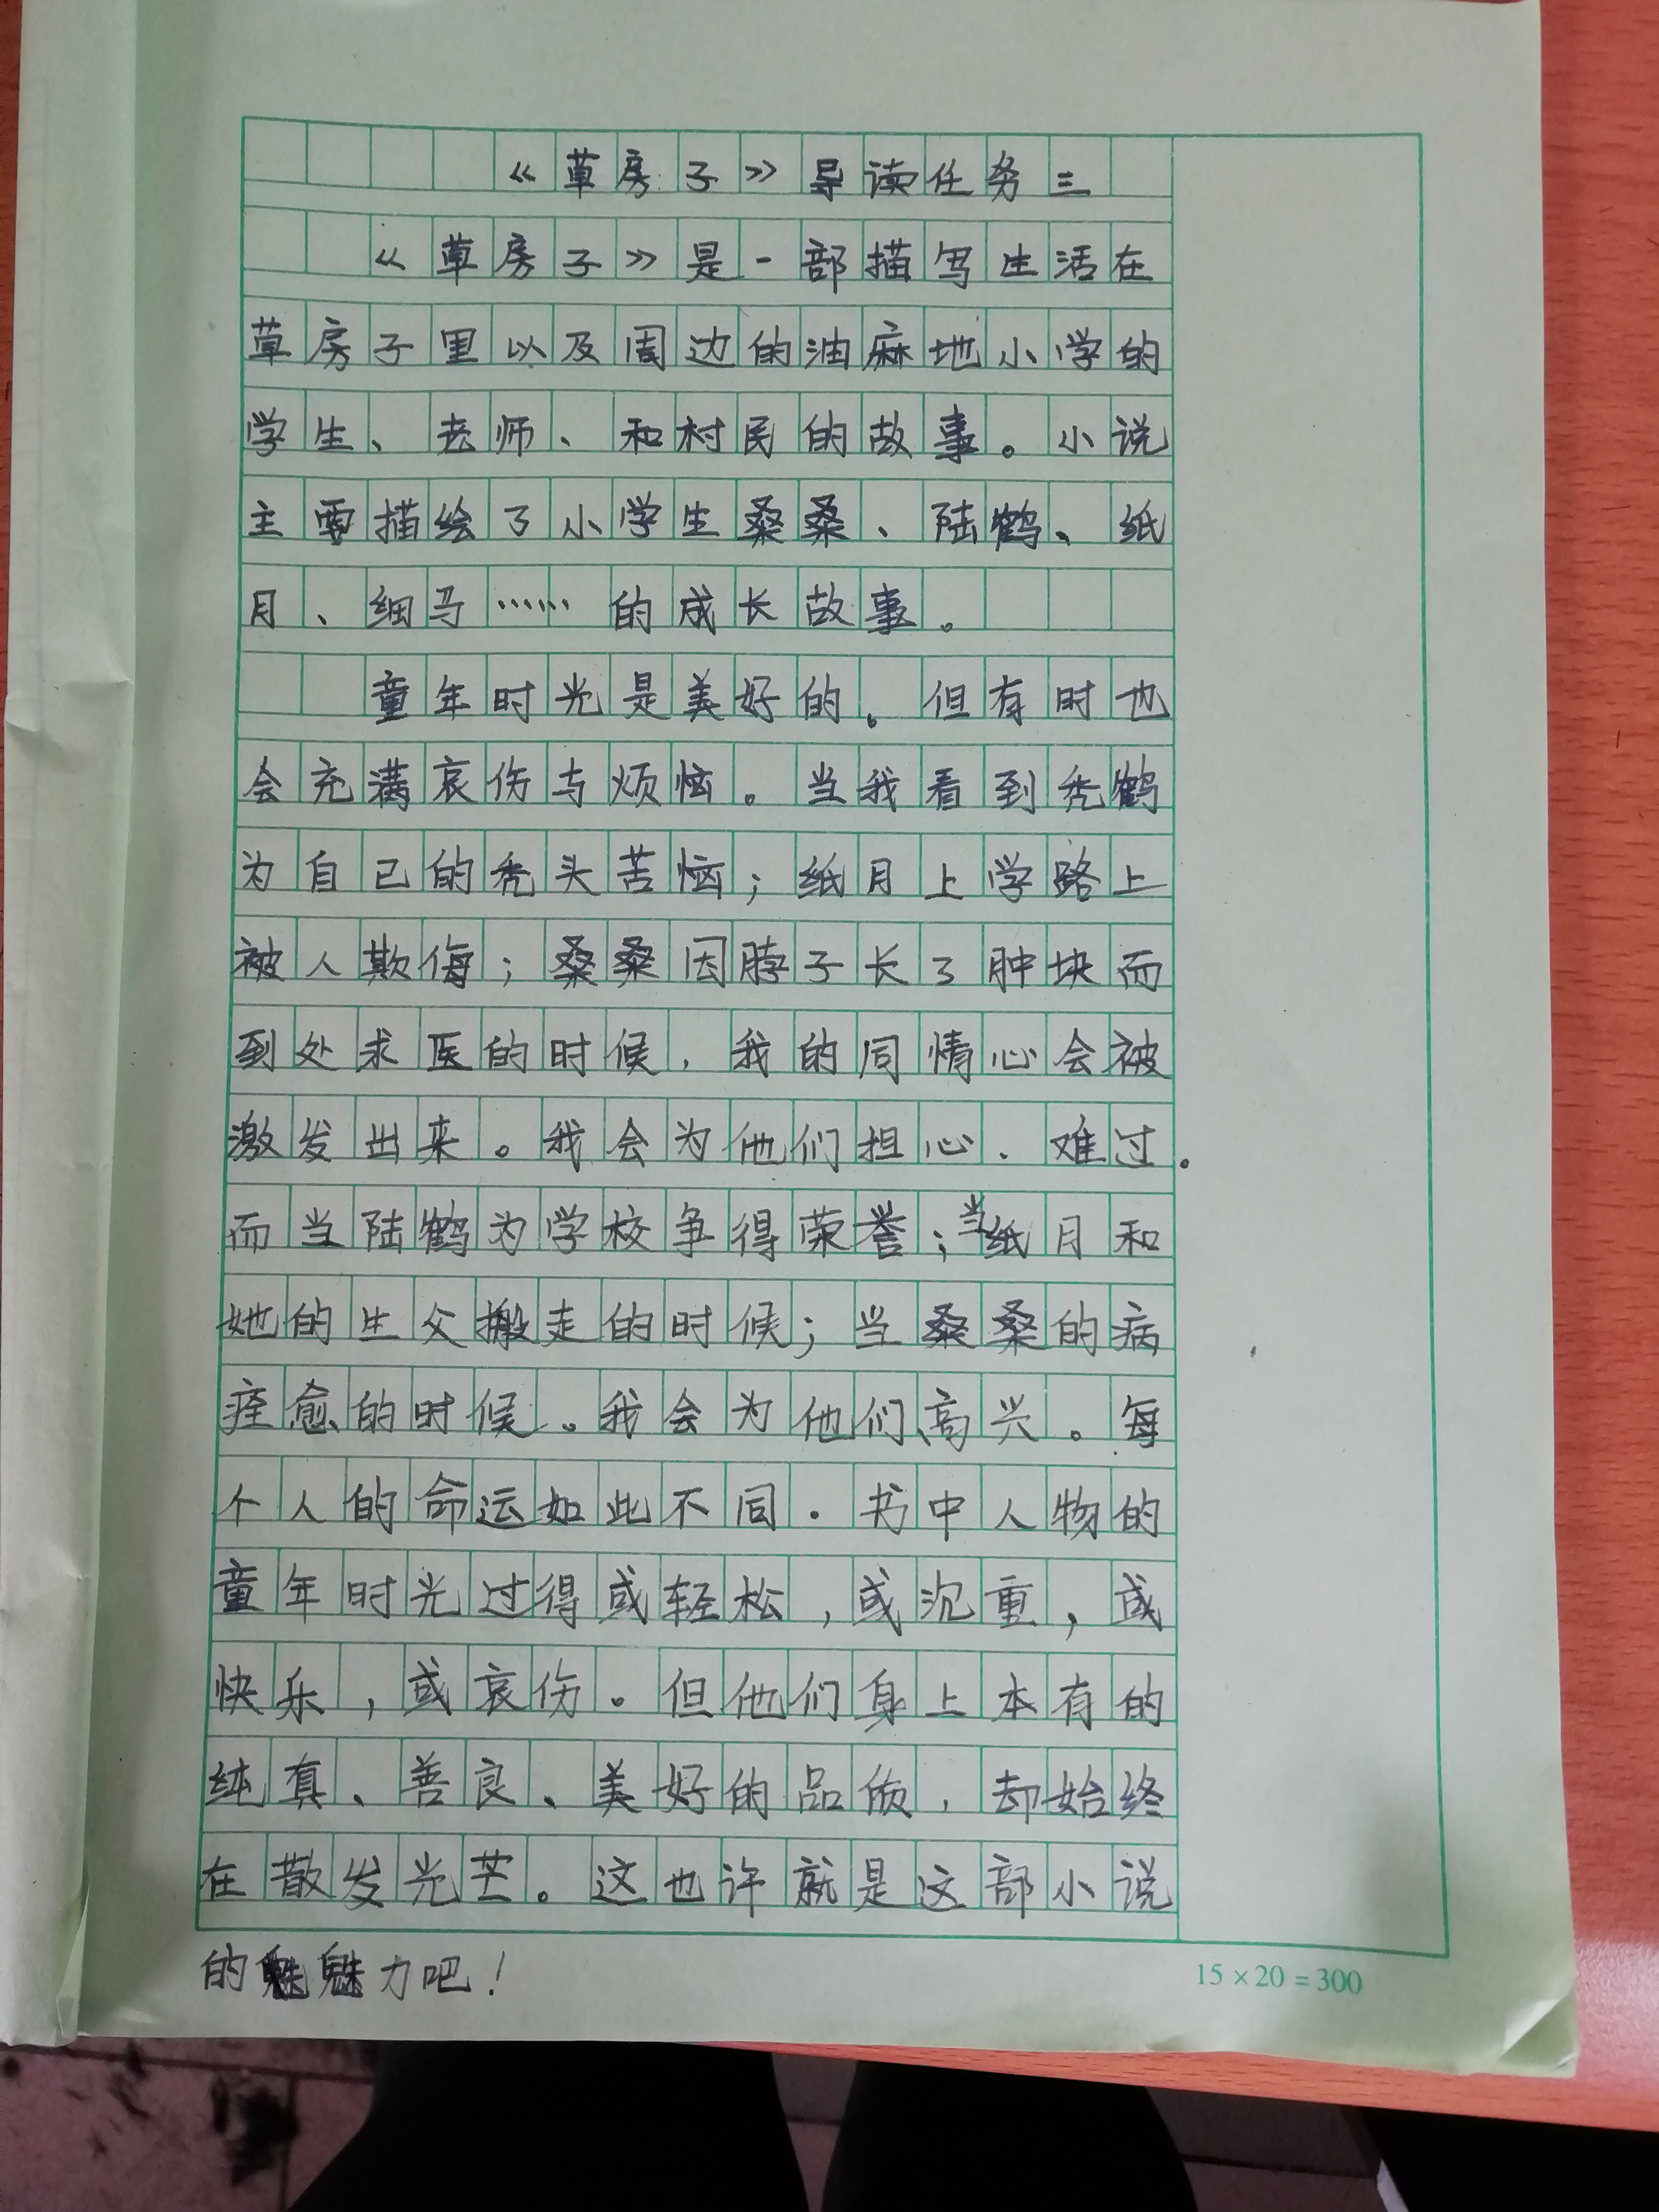 《草房子》导读任务三
《草房子》是一部描写生活在
草房子里以及周边的油麻地小学的
学生、老师、和村民的故事。小说
主要描绘了小学生桑桑、陆鹤、纸
月、细马……的成长故事。
童年时光是美好的。但有时也
会充满哀伤与烦恼。当我看到秃鹤
为自己的秃头苦恼；纸月上学路上
被人欺侮；桑桑因脖子长了肿块而
到处求医的时候，我的同情心会被
激发出来。我会为他们担心、难过。
而当陆鹤为学校争得荣誉；当纸月和
她的生父搬走的时候；当桑桑的病
痊愈的时候。我会为他们高兴。每
个人的命运如此不同．书中人物的
童年时光过得或轻松，或沉重，或
快乐，或哀伤。但他们身上本有的
纯真、善良、美好的品质，却始终
在散发光芒。这也许就是这部小说
的魅力吧！
15×20=300